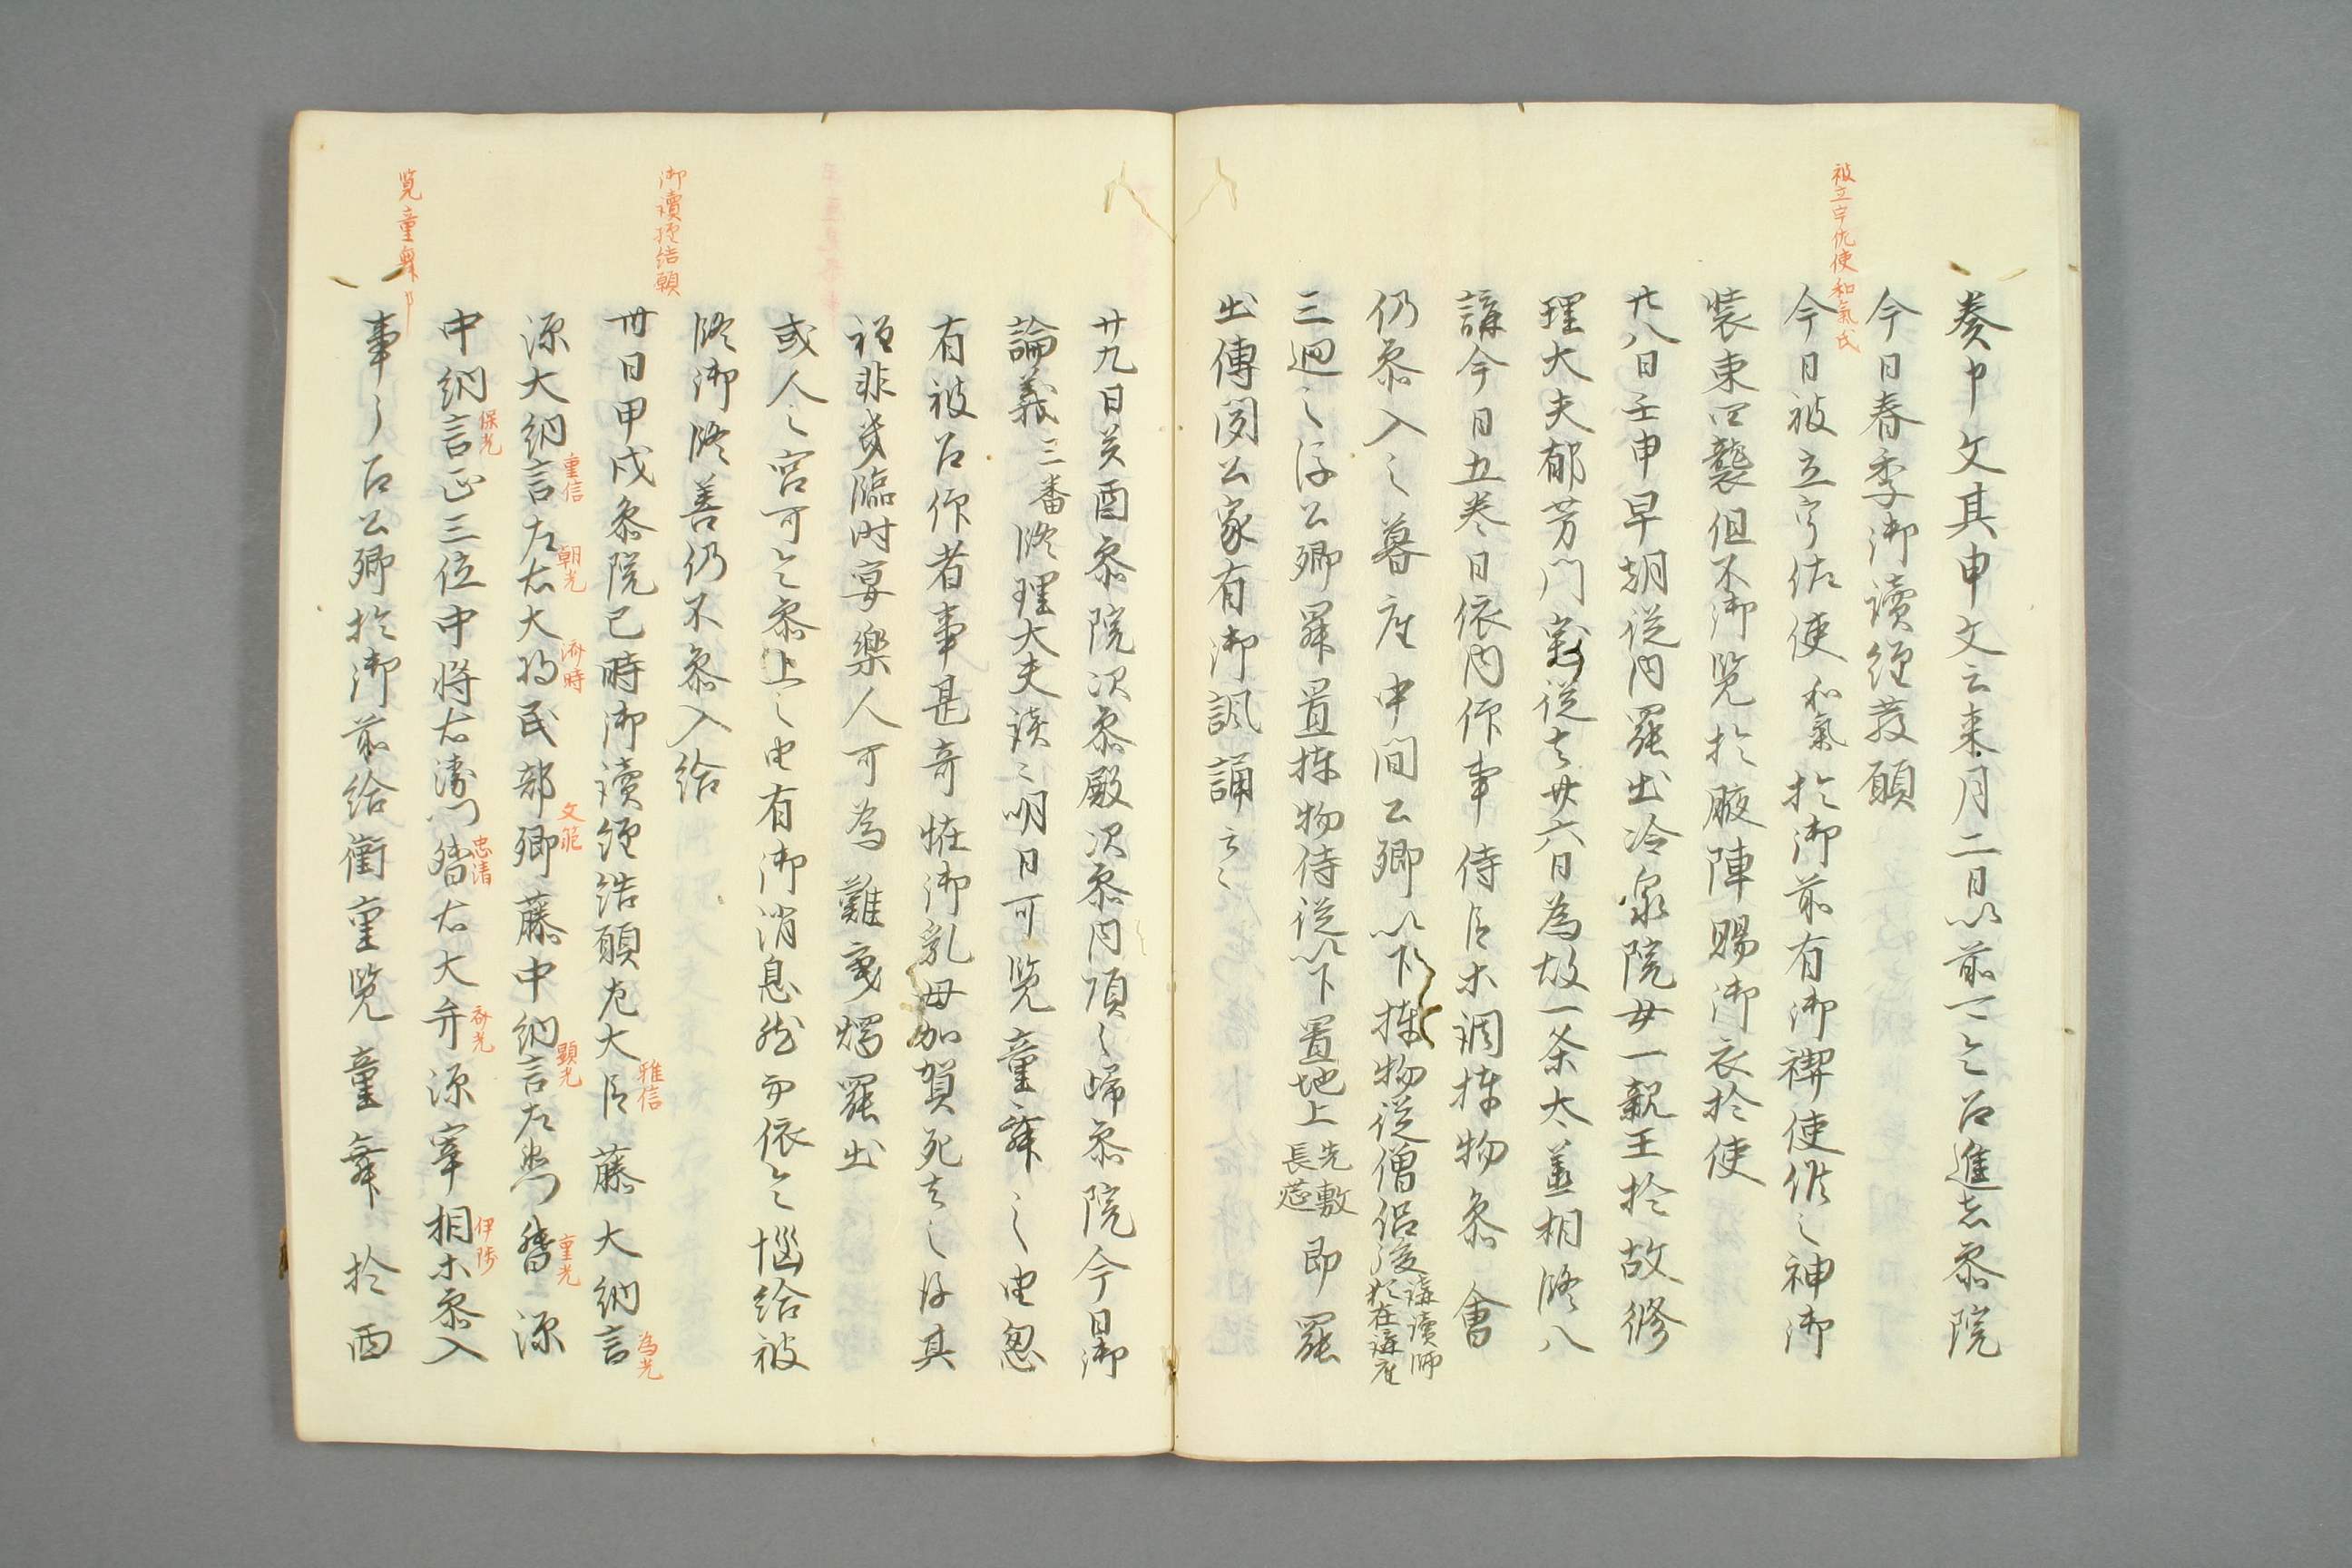 被立宇佐使和氣氏
奏申文其申文云来月二日以前可令召進者参院
今日春季御讀經發願
今日被立宇佐使和氣於御前有御禊使候之神御
装束四襲但不御覧於腋陣賜御衣於使
廿八日壬申早朝従内罷出冷泉院女一親王於故修
理大夫郁芳門家従去廿六日為故一条太〻盖相修八
講今日五巻日依内仰事侍臣等調捧物参會
仍参入之暮座中間公卿以下捧物従僧侶後講讀師猶在講座
三廻之後公卿畢置捧物侍従以下置地上先敷長莚即罷
出傳聞公家有御諷誦云々
廿九日癸酉参院次参殿次参内頃之帰参院今日御
論義三番修理大夫談云明日可覧童舞之由忽
有被召仰者事甚奇恠御乳母加賀死去之後其
程非幾臨時宴樂人可為難乗燭罷出
或人云宮可令参上之由有御消息然而依令惱給被
修御修善仍不参入給
御讀經結願
卅日甲戌参院已時御讀經結願左大臣雅信藤大納言為光
源大納言重信左右大将朝光済時民部卿文範藤中納言顕光左衛門督重光源
中納言保光正三位中将右衛門督忠清右大弁源宰相伊陟等参入
覧童舞
事了召公卿於御前給衝重覧童舞於西